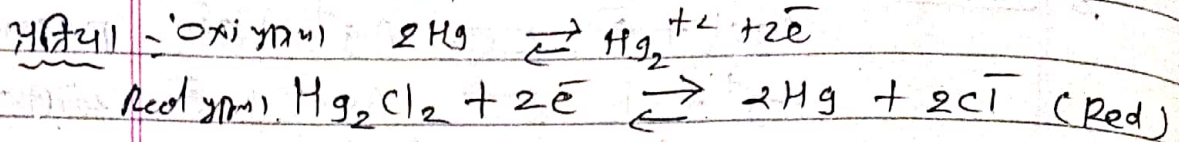 પ્રક્રિયા :- Oxi થાય) 2Hg ⇌ Hg₂⁺² + 2e̅
Red થાય). Hg₂Cl₂ + 2e̅ ⇌ 2Hg + 2Cl̅ (Red)